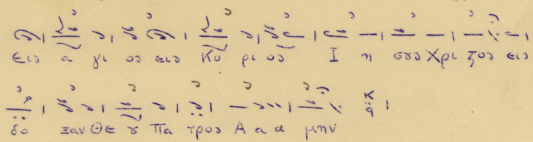 εις α γι ος εις Κυ ρι ος Ι η σους Χρι στος εις
δο ξαν Θε ου Πα τρος Α α α μην